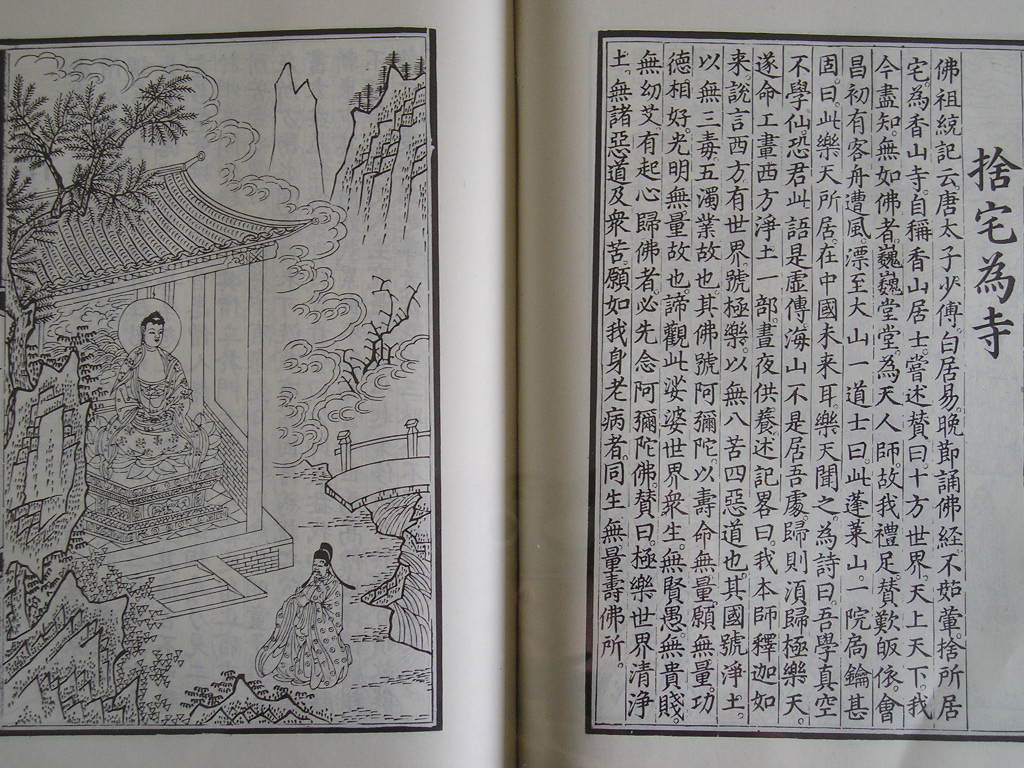 捨宅為寺
佛祖統記云。唐太子少傅。白居易。晚節誦佛經。不茹葷。捨所居
宅。為香山寺。自稱香山居士。嘗述贊曰。十方世界。天上天下。我
今盡知。無如佛者。巍巍堂堂。為天人師。故我禮足。贊歎皈依。會
昌初。有客舟遭風。漂至大山。一道士曰。此蓬萊山。一院扃鑰甚
固。曰。此樂天所居。在中國未来耳。樂天聞之。為詩曰。吾學真空
不學仙。恐君此語是虛傳。海山不是居吾處。歸則須歸極樂天。
遂命工畫西方淨土一部。晝夜供養。述記畧曰。我本師釋迦如
来。說言西方有世界。號極樂。以無八苦四惡道也。其國號淨土。
以無三毒。五濁業故也。其佛號阿彌陀。以壽命無量。願無量。功
德相好。光明無量故也。諦觀此娑婆世界衆生。無賢愚。無貴賤。
無幼艾。有起心歸佛者。必先念阿彌陀佛。贊曰。極樂世界清淨
土。無諸惡道及衆苦。願如我身老病者。同生無量壽佛所。